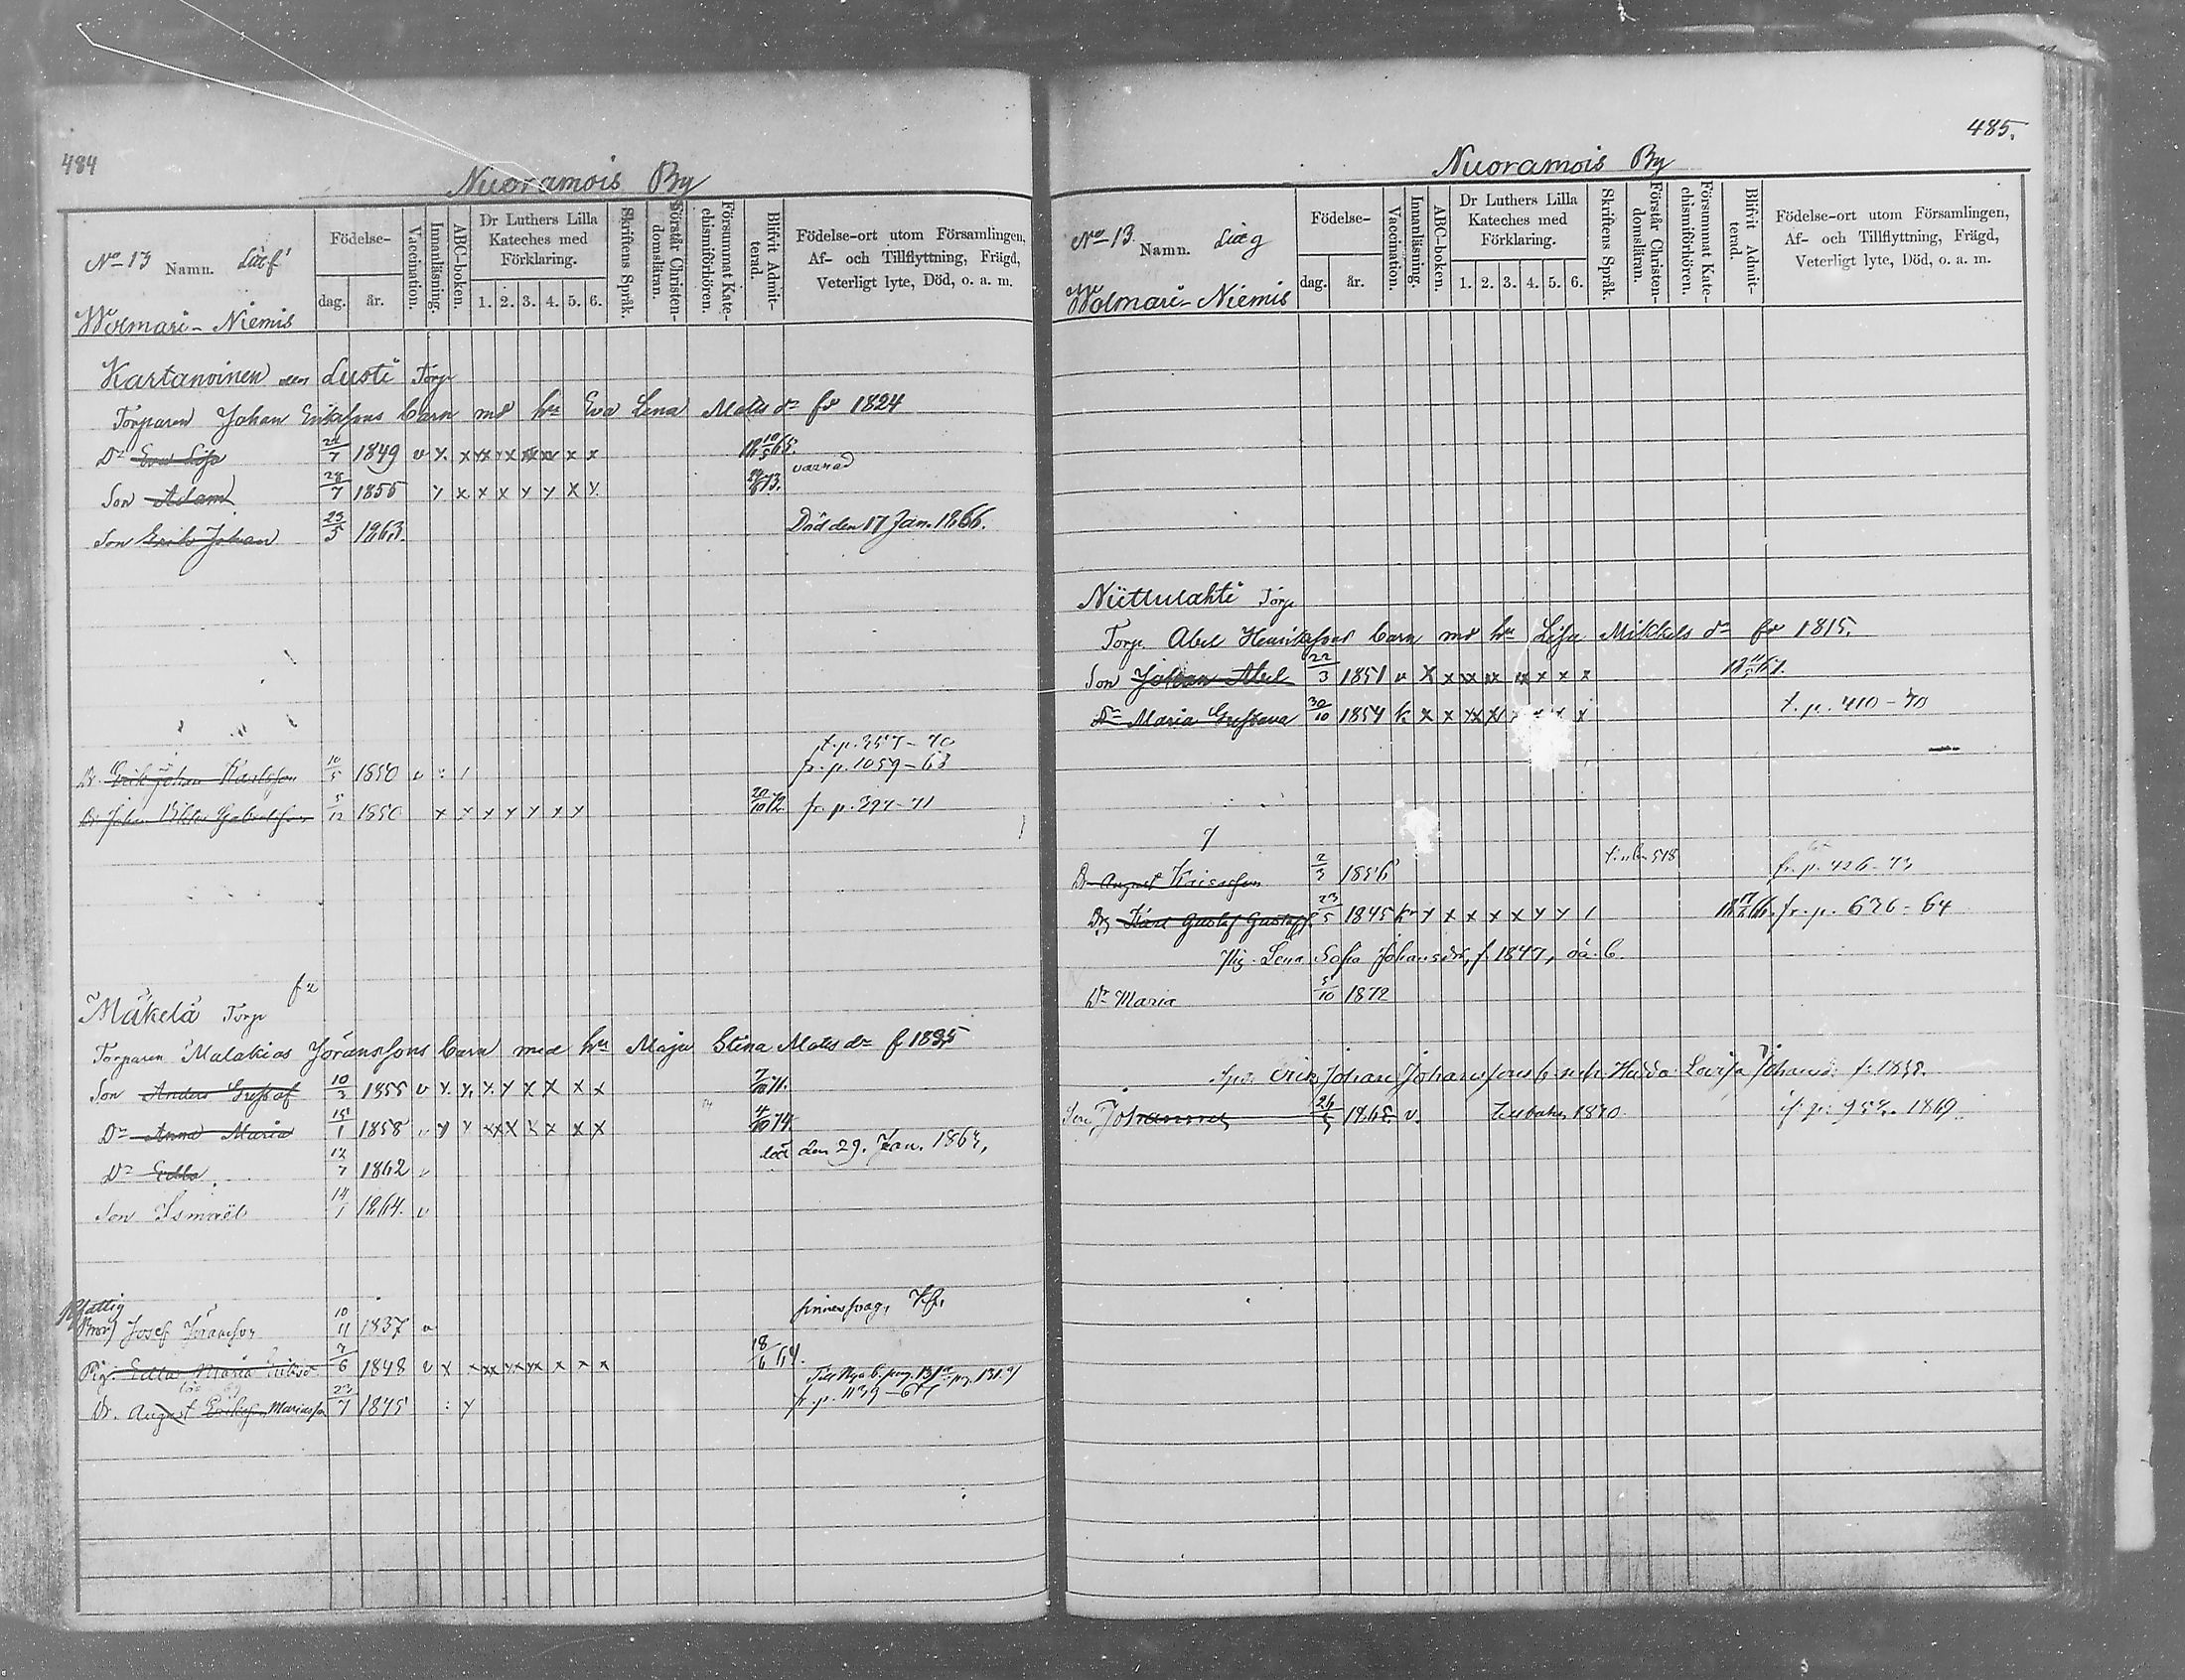 484
Nuoramois By
No 13 Namn. Litt f
Födelse-
dag. år.
Vaccination.
Innanläsning.
ABC-boken.
Dr Luthers Lilla Kateches med Förklaring.
1. 2. 3. 4. 5. 6.
Skriftens Språk.
Förstår Christendomsläran.
Försummat Katechismiförhören.
Blifvit Admitterad.
Födelse-ort utom Församlingen, Af- och Tillflyttning, Frägd, Veterligt lyte, Död, o. a. m.
Wolmari-Niemis
Kartanoinen Lusti Torp
Torparen Johan Erikssons barn md hu Eva Lena Mats dr fd 1824
Dr Eva Lisa 24/7 1849 v x x xx x x x x
Son Adam 28/7 1855 x x x x x x x x
Son Erik Johan 23/5 1863. Död den 17 Jan. 1866.
t. p. 357-70
Dr. Erik Johan Karlsson 10/5 1850 v : / fr. p. 1059-63
Dr Johan Viktor Gabrielsson 5/12 1850 x x x x x x x 20/10 72 fr. p. 397-71
Mäkelä Torp
Torparen Malakias Jöranssons barn med hu Maja Stina Mats dr f 1835
Son Anders Gustaf 10/3 1855 v x x x x x x x x 7/10 71.
Dr Anna Maria 15/1 1858 v x x xx x x x x x 4/10 74.
Dr Edla 12/7 1862 v död den 29. Jan. 1863,
Son Ismaël 14/1 1864. v
Fattig
Bror Josef Jöransson 10/11 1837 v sinnessvag,
Pig. Edla Maria Eriksd. 7/6 1848 v x x xx xx x x x x 18/6 64.
Dr. August Eriksson Mariasson 23/7 1845 : x fr. p. 1139-67
485.
Nuoramois By
No 13. Namn. Litt g
Födelse-
dag. år.
Vaccination.
Innanläsning.
ABC-boken.
Dr Luthers Lilla Kateches med Förklaring.
1. 2. 3. 4. 5. 6.
Skriftens Språk.
Förstår Christendomsläran.
Försummat Katechismiförhören.
Blifvit Admitterad.
Födelse-ort utom Församlingen, Af- och Tillflyttning, Frägd, Veterligt lyte, Död, o. a. m.
Wolmari-Niemis
Niittulahti Torp
Torp. Abel Henrikssons barn md hu Lisa Mikkels dr fd 1815.
Son Johan Abel 22/3 1851 v x x xx xx x x x x
Dr Maria Gustava 30/10 1854 k x x xx xx x x x t. p. 410-70
Dr August Kaisasson 2/3 1856 fr. p. 426-73
Drg Karl Gustaf Gustafss. 23/5 1845 k x x x x x x x / fr. p. 636-64
Pig. Lena Sofia Johansdr, f. 1847, oä. b.
Dr Maria 5/10 1872
Erik Johan Johanssons b. m. h. Hedda Lovisa Johansd. f. 1838.
Son, Johannes 26/5 1868. v. 1870. p. 952. 1869.